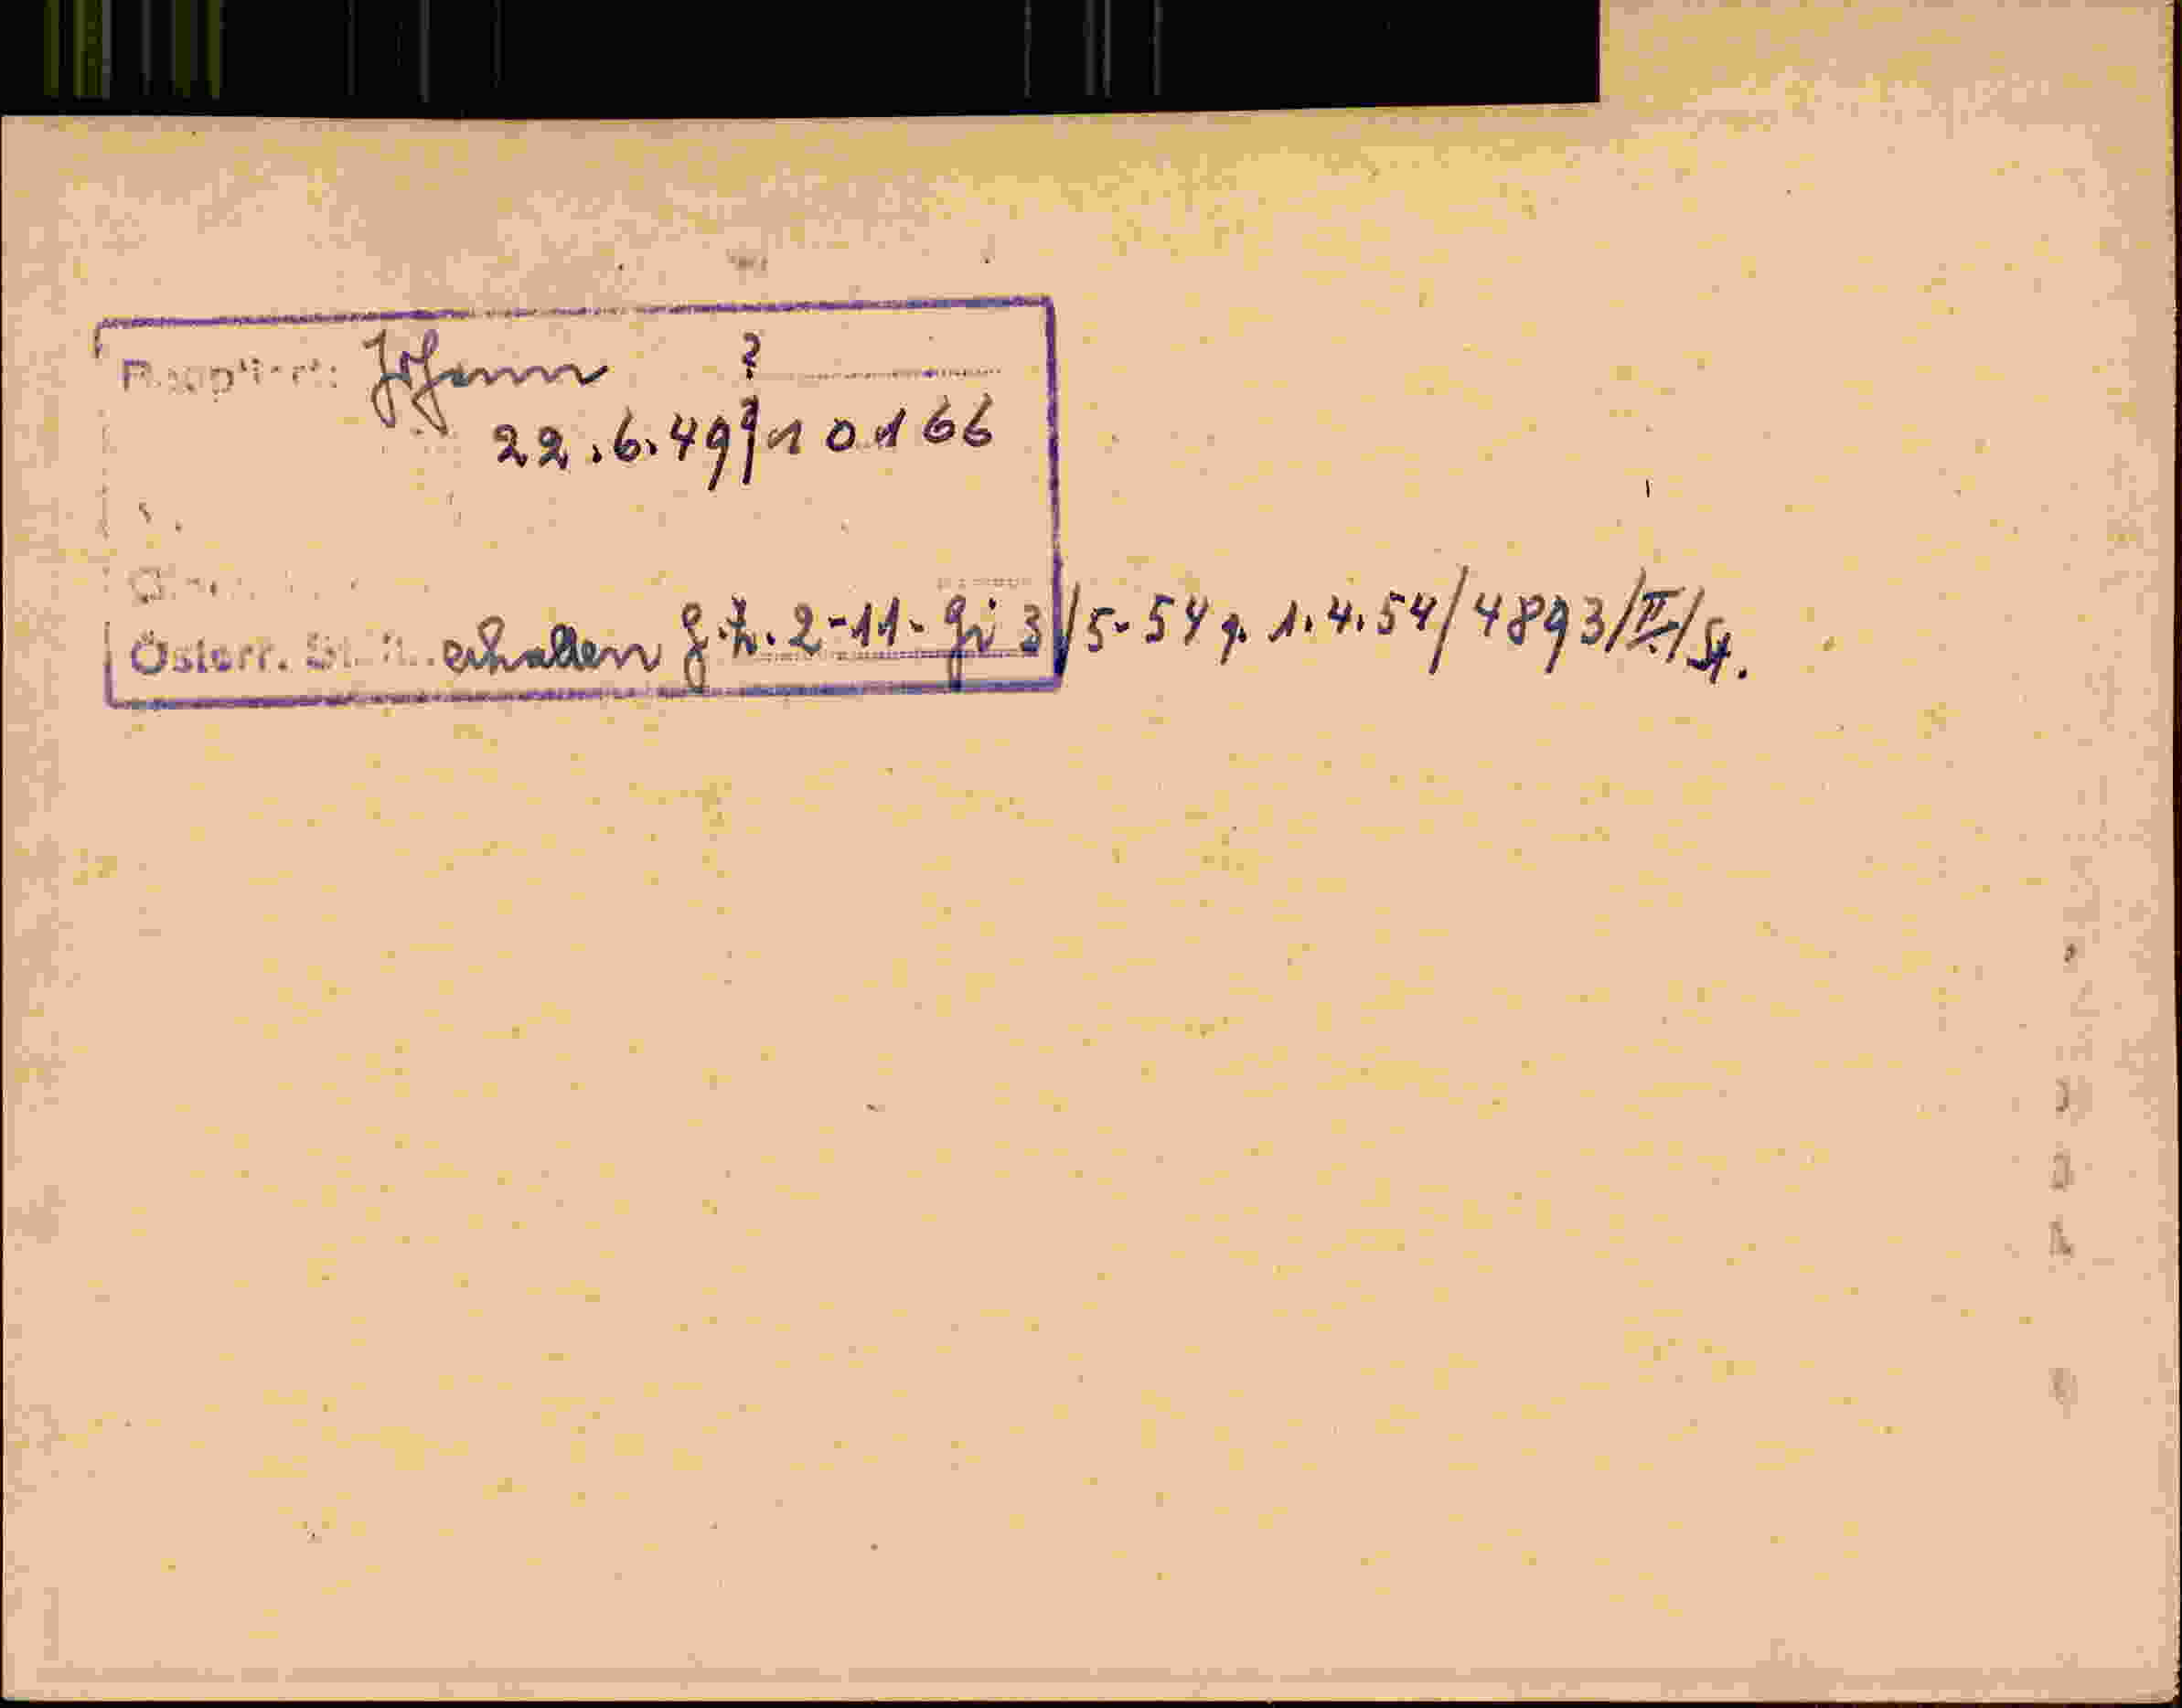 Johann ?
22.6.49 10166
Österr. St. erhalten g.z. 2-11-Gi 3/5-54 1.4.54/4893/II/St.